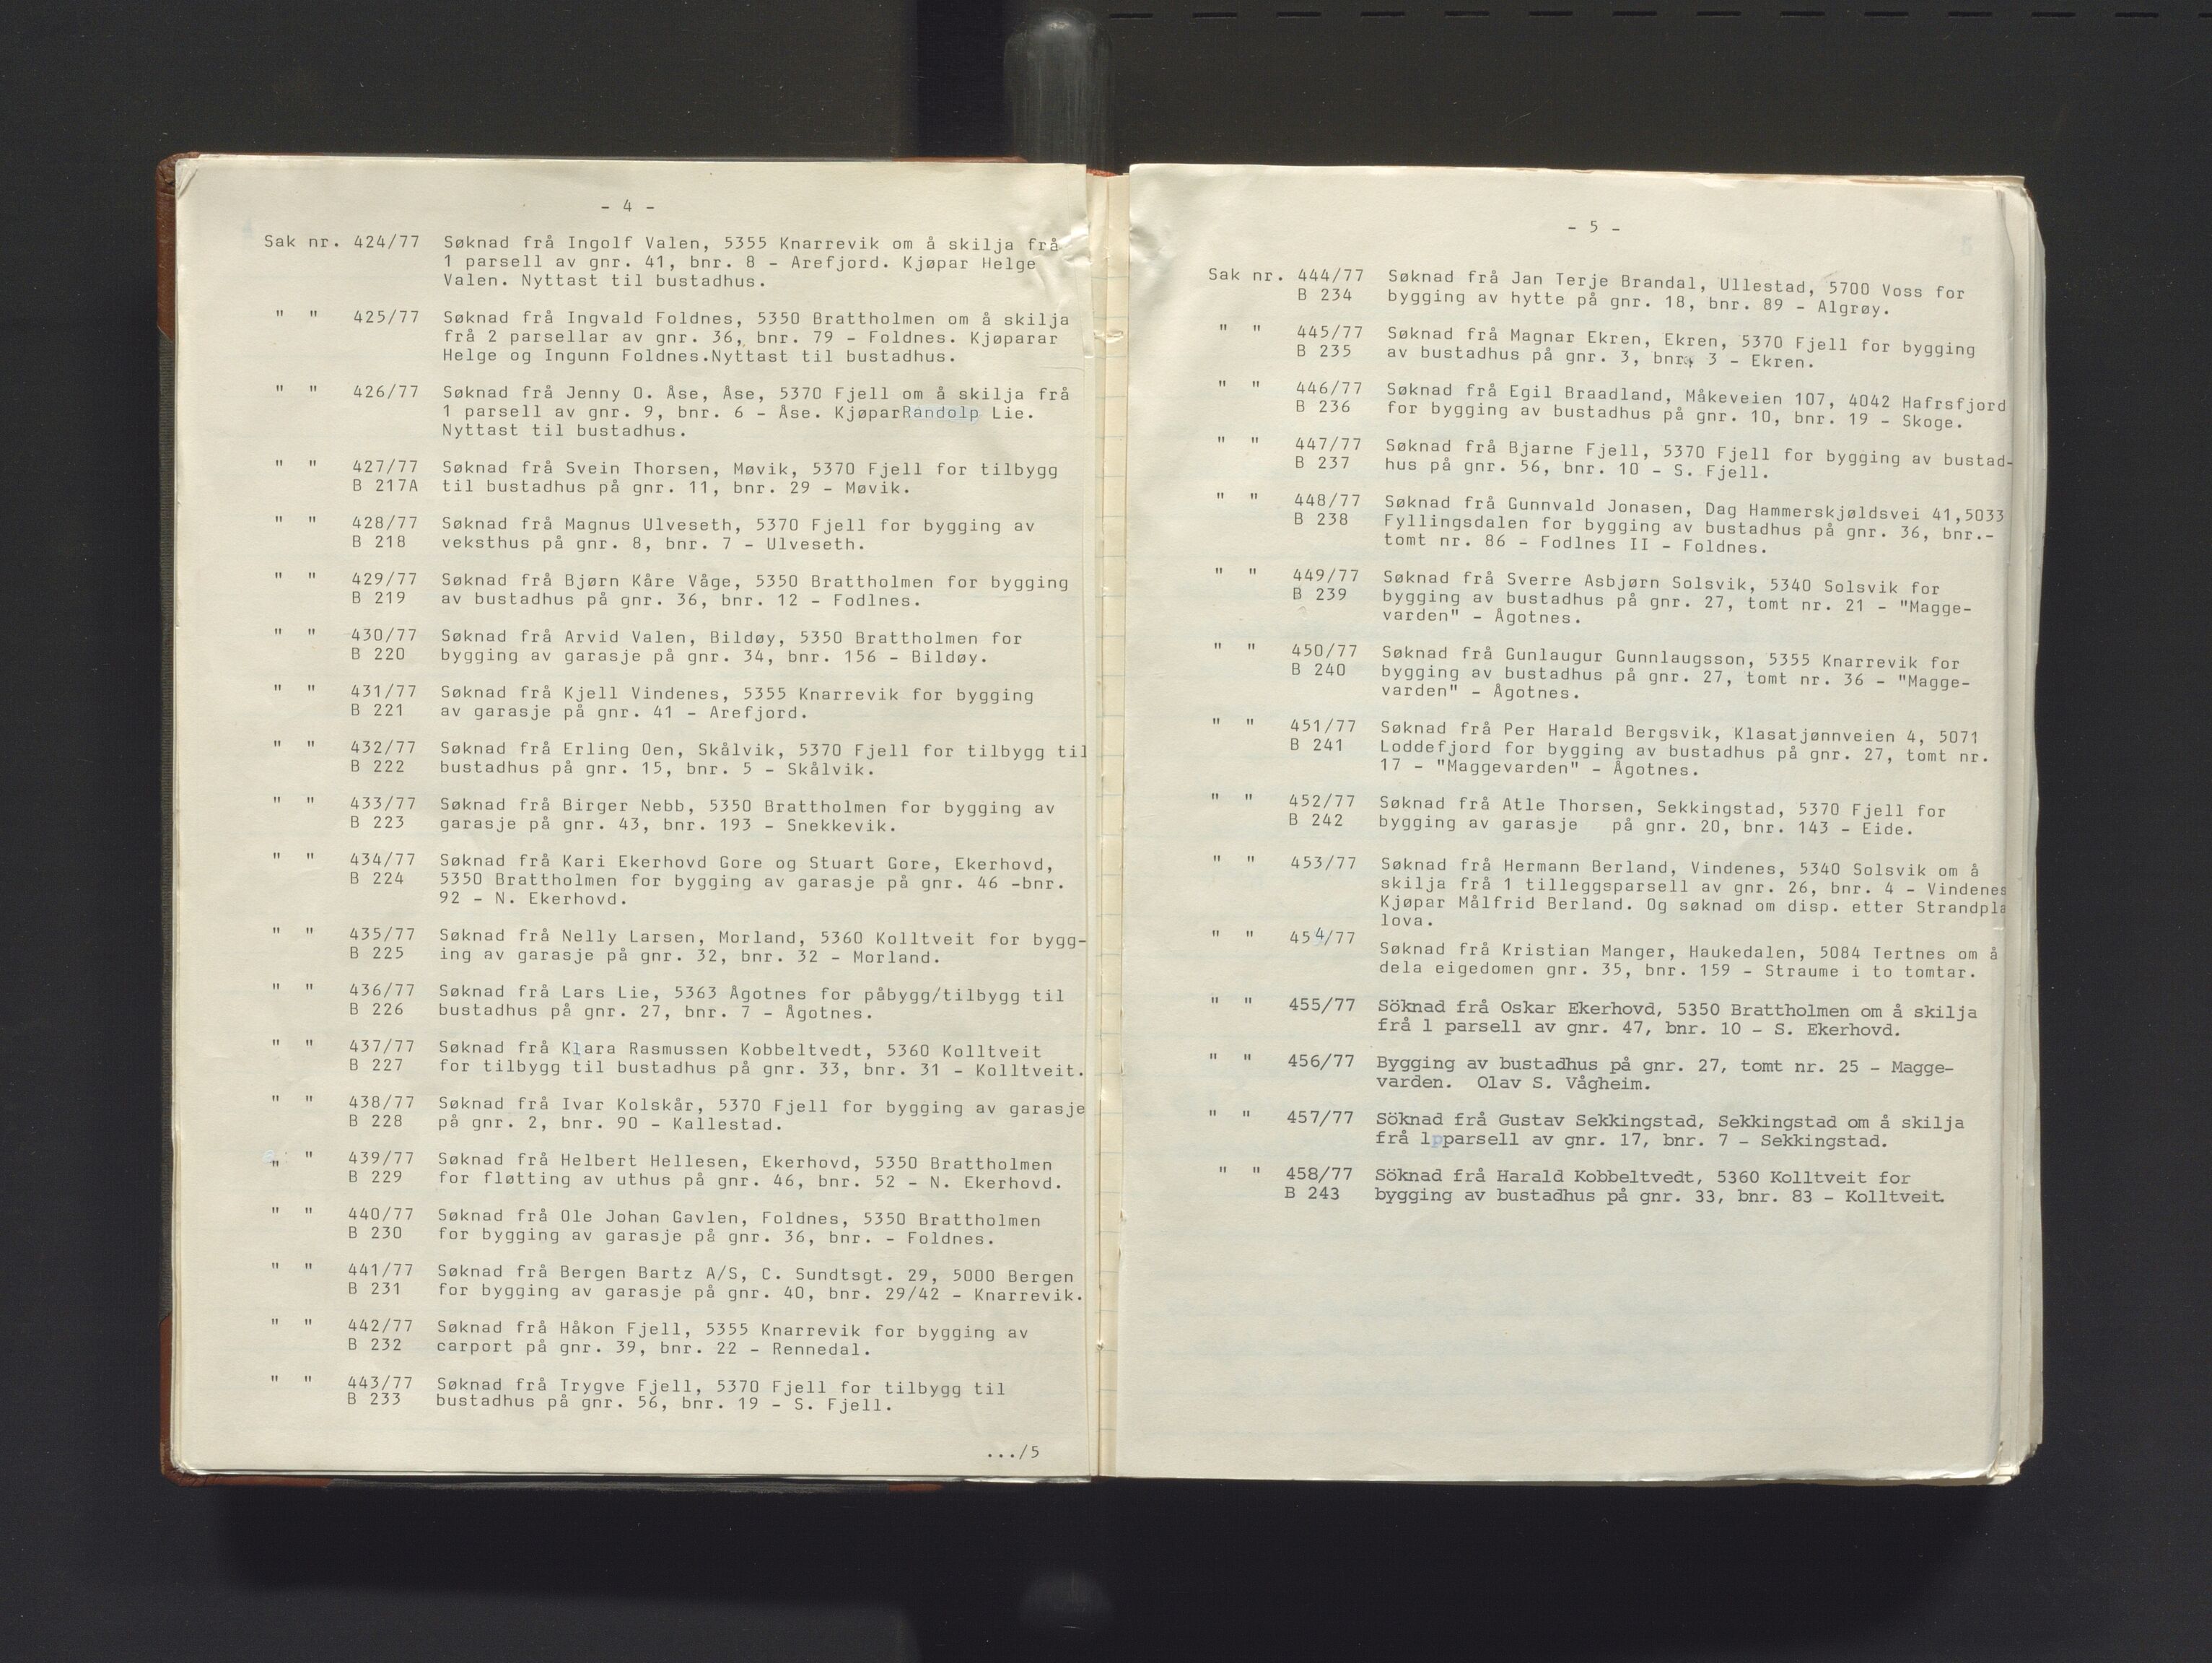 - 4 -
Sak nr. 424/77 Søknad frå Ingolf Valen, 5355 Knarrevik om å skilja frå
1 parsell av gnr. 41, bnr. 8 - Arefjord. Kjøpar Helge
Valen. Nyttast til bustadhus.
" " 425/77 Søknad frå Ingvald Foldnes, 5350 Brattholmen om å skilja
frå 2 parsellar av gnr. 36, bnr. 79 - Foldnes. Kjøparar
Helge og Ingunn Foldnes.Nyttast til bustadhus.
" " 426/77 Søknad frå Jenny O. Åse, Åse, 5370 Fjell om å skilja frå
1 parsell av gnr. 9, bnr. 6 - Åse. KjøparRandolp Lie.
Nyttast til bustadhus.
" " 427/77 Søknad frå Svein Thorsen, Møvik, 5370 Fjell for tilbygg
B 217A til bustadhus på gnr. 11, bnr. 29 - Møvik.
" " 428/77 Søknad frå Magnus Ulveseth, 5370 Fjell for bygging av
B 218 veksthus på gnr. 8, bnr. 7 - Ulveseth.
" " 429/77 Søknad frå Bjørn Kåre Våge, 5350 Brattholmen for bygging
B 219 av bustadhus på gnr. 36, bnr. 12 - Fodlnes.
" " 430/77 Søknad frå Arvid Valen, Bildøy, 5350 Brattholmen for
B 220 bygging av garasje på gnr. 34, bnr. 156 - Bildøy.
" " 431/77 Søknad frå Kjell Vindenes, 5355 Knarrevik for bygging
B 221 av garasje på gnr. 41 - Arefjord.
" " 432/77 Søknad frå Erling Oen, Skålvik, 5370 Fjell for tilbygg til
B 222 bustadhus på gnr. 15, bnr. 5 - Skålvik.
" " 433/77 Søknad frå Birger Nebb, 5350 Brattholmen for bygging av
B 223 garasje på gnr. 43, bnr. 193 - Snekkevik.
" " 434/77 Søknad frå Kari Ekerhovd Gore og Stuart Gore, Ekerhovd,
B 224 5350 Brattholmen for bygging av garasje på gnr. 46 -bnr.
92 - N. Ekerhovd.
" " 435/77 Søknad frå Nelly Larsen, Morland, 5360 Kolltveit for bygg-
B 225 ing av garasje på gnr. 32, bnr. 32 - Morland.
" " 436/77 Søknad frå Lars Lie, 5363 Ågotnes for påbygg/tilbygg til
B 226 bustadhus på gnr. 27, bnr. 7 - Ågotnes.
" " 437/77 Søknad frå Klara Rasmussen Kobbeltvedt, 5360 Kolltveit
B 227 for tilbygg til bustadhus på gnr. 33, bnr. 31 - Kolltveit.
" " 438/77 Søknad frå Ivar Kolskår, 5370 Fjell for bygging av garasje
B 228 på gnr. 2, bnr. 90 - Kallestad.
" " 439/77 Søknad frå Helbert Hellesen, Ekerhovd, 5350 Brattholmen
B 229 for fløtting av uthus på gnr. 46, bnr. 52 - N. Ekerhovd.
" " 440/77 Søknad frå Ole Johan Gavlen, Foldnes, 5350 Brattholmen
B 230 for bygging av garasje på gnr. 36, bnr. - Foldnes.
" " 441/77 Søknad frå Bergen Bartz A/S, C. Sundtsgt. 29, 5000 Bergen
B 231 for bygging av garasje på gnr. 40, bnr. 29/42 - Knarrevik.
" " 442/77 Søknad frå Håkon Fjell, 5355 Knarrevik for bygging av
B 232 carport på gnr. 39, bnr. 22 - Rennedal.
" " 443/77 Søknad frå Trygve Fjell, 5370 Fjell for tilbygg til
B 233 bustadhus på gnr. 56, bnr. 19 - S. Fjell.
.../5
- 5 -
Sak nr. 444/77 Søknad frå Jan Terje Brandal, Ullestad, 5700 Voss for
B 234 bygging av hytte på gnr. 18, bnr. 89 - Algrøy.
" " 445/77 Søknad frå Magnar Ekren, Ekren, 5370 Fjell for bygging
B 235 av bustadhus på gnr. 3, bnr. 3 - Ekren.
" " 446/77 Søknad frå Egil Braadland, Måkeveien 107, 4042 Hafrsfjord
B 236 for bygging av bustadhus på gnr. 10, bnr. 19 - Skoge.
" " 447/77 Søknad frå Bjarne Fjell, 5370 Fjell for bygging av bustad-
B 237 hus på gnr. 56, bnr. 10 - S. Fjell.
" " 448/77 Søknad frå Gunnvald Jonasen, Dag Hammerskjøldsvei 41,5033
B 238 Fyllingsdalen for bygging av bustadhus på gnr. 36, bnr.-
tomt nr. 86 - Fodlnes II - Foldnes.
" " 449/77 Søknad frå Sverre Asbjørn Solsvik, 5340 Solsvik for
B 239 bygging av bustadhus på gnr. 27, tomt nr. 21 - "Magge-
varden" - Ågotnes.
" " 450/77 Søknad frå Gunlaugur Gunnlaugsson, 5355 Knarrevik for
B 240 bygging av bustadhus på gnr. 27, tomt nr. 36 - "Magge-
varden" - Ågotnes.
" " 451/77 Søknad frå Per Harald Bergsvik, Klasatjønnveien 4, 5071
B 241 Loddefjord for bygging av bustadhus på gnr. 27, tomt nr.
17 - "Maggevarden" - Ågotnes.
" " 452/77 Søknad frå Atle Thorsen, Sekkingstad, 5370 Fjell for
B 242 bygging av garasje på gnr. 20, bnr. 143 - Eide.
" " 453/77 Søknad frå Hermann Berland, Vindenes, 5340 Solsvik om å
skilja frå 1 tilleggsparsell av gnr. 26, bnr. 4 - Vindenes
Kjøpar Målfrid Berland. Og søknad om disp. etter Strandpla
lova.
" " 454/77
Søknad frå Kristian Manger, Haukedalen, 5084 Tertnes om å
dela eigedomen gnr. 35, bnr. 159 - Straume i to tomtar.
" " 455/77 Söknad frå Oskar Ekerhovd, 5350 Brattholmen om å skilja
frå 1 parsell av gnr. 47, bnr. 10 - S. Ekerhovd.
" " 456/77 Bygging av bustadhus på gnr. 27, tomt nr. 25 - Magge-
varden. Olav S. Vågheim.
" " 457/77 Söknad frå Gustav Sekkingstad, Sekkingstad om å skilja
frå 1pparsell av gnr. 17, bnr. 7 - Sekkingstad.
" " 458/77 Söknad frå Harald Kobbeltvedt, 5360 Kolltveit for
B 243 bygging av bustadhus på gnr. 33, bnr. 83 - Kolltveit.